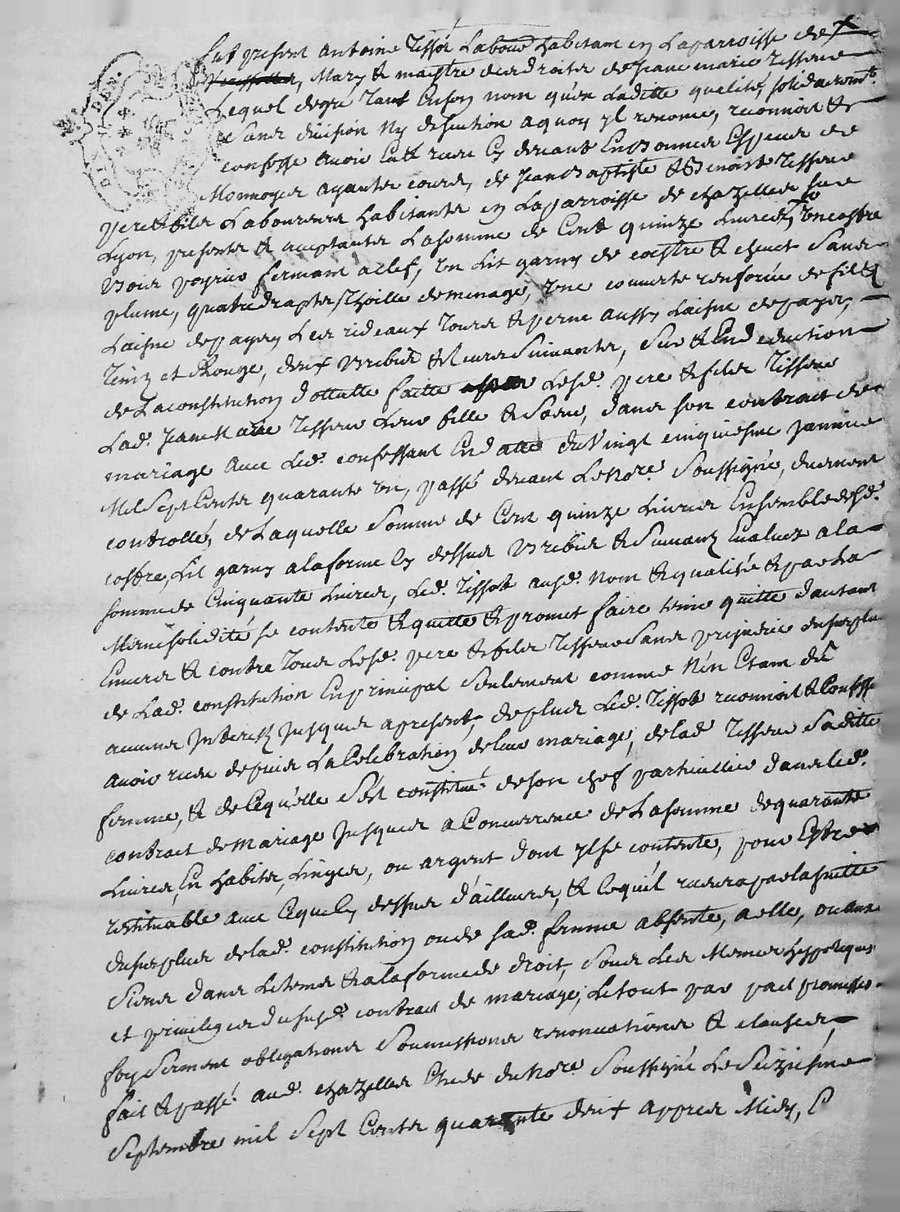 fut present antoine Tissot Labour habitant en Laparroisse de
mary & maistre des droits de Jeane marie Tisseur
Lequel degré tant Enson nom quen Laditte qualité, solidairemt
& sans division Ny discution aquoy yl renonce, reconnoit &
confesse avoir Eu & receu Cy devant En bonnes Especes de
Monnoyes ayantes cours, de Jean baptiste & Benoist Tisseur
pere & fils Laboureurs habitants en Laparroisse de chazelles sur
Lyon, presents & acceptants La somme de Cent quinze Livres, un coffre
bois fermant aclef, un Lit garny de coistre & chevet Sans
plume, quatre draps thoille demenage, une couverte de fil &
Laisne depayis, Les rideaux tours & aussy Laisne depayis,
Teint et Rouge, deux & Suivante, Sur & En deduction
de Laconstitution dottalle faitte Lesd. pere & fils Tisseur
Lad. Jeanemarie Tisseur Leur fille & Soeur, dans son contract de
mariage avec Led. confessant En datte du Vingt cinquiesme Janvier
Mil Sept Cents quarante un, passé devant Le Nore. Soussigné, duement
controllé, de Laquelle Somme de Cent quinze Livres Ensemble desd.
coffre, Lit garny alaforme Cy dessus & Evaluez ala
somme de Cinquante Livres, Led. Tissot ausd. nom & qualité & par la
Meme solidité se contente & quitte & promet faire tenir quitte d'autant
Envers & contre tous Lesd. pere & fils Tisseur Sans prejudice du surplus
de Lad. constitution En principal Seulement comme N'en Etant dû
aucuns Interests Jusques apresent, deplus Led. Tissot reconnoit & Confesse
avoir receu depuis La Celebration de leur mariage, de lad. Tisseur Saditte
femme, & de Cequ'elle S'est constitué de son chef particullier dans led.
contract de mariage Jusques a Concurrence de La somme de quarante
Livres, En habits, Linges, ou argent dont yl se contente, pour Estre
restituable avec Cequ'ey dessus d'ailleurs, & Cequ'il recevra par la suitte
du surplus de lad. constitution ou de sad. femme absente, aelle, ou aux
Siens dans Letems & alaforme de droit, Sous Les Memes hyppoteques
et privileges du susd. contract de mariage; Le tout par foy
Serment obligations Soumissions renonciations & clauses,
fait & passé aud. chazelles Etude du Nore. Soussigné Le Seiziéme
Septembre mil Sept Cents quarante deux apprès Midy,